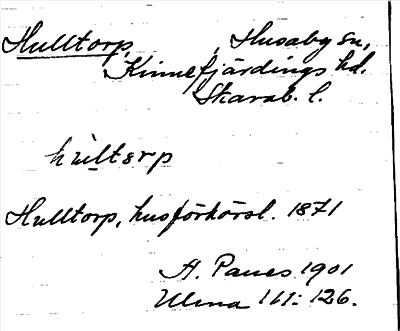 Hulltorp, Husaby sn,
Kinnefjärdings hd.
Skarab. l.
hùltɛrp
Hulltorp, husförhörsl. 1871
A. Paues 1901
Ulma 161: 126.